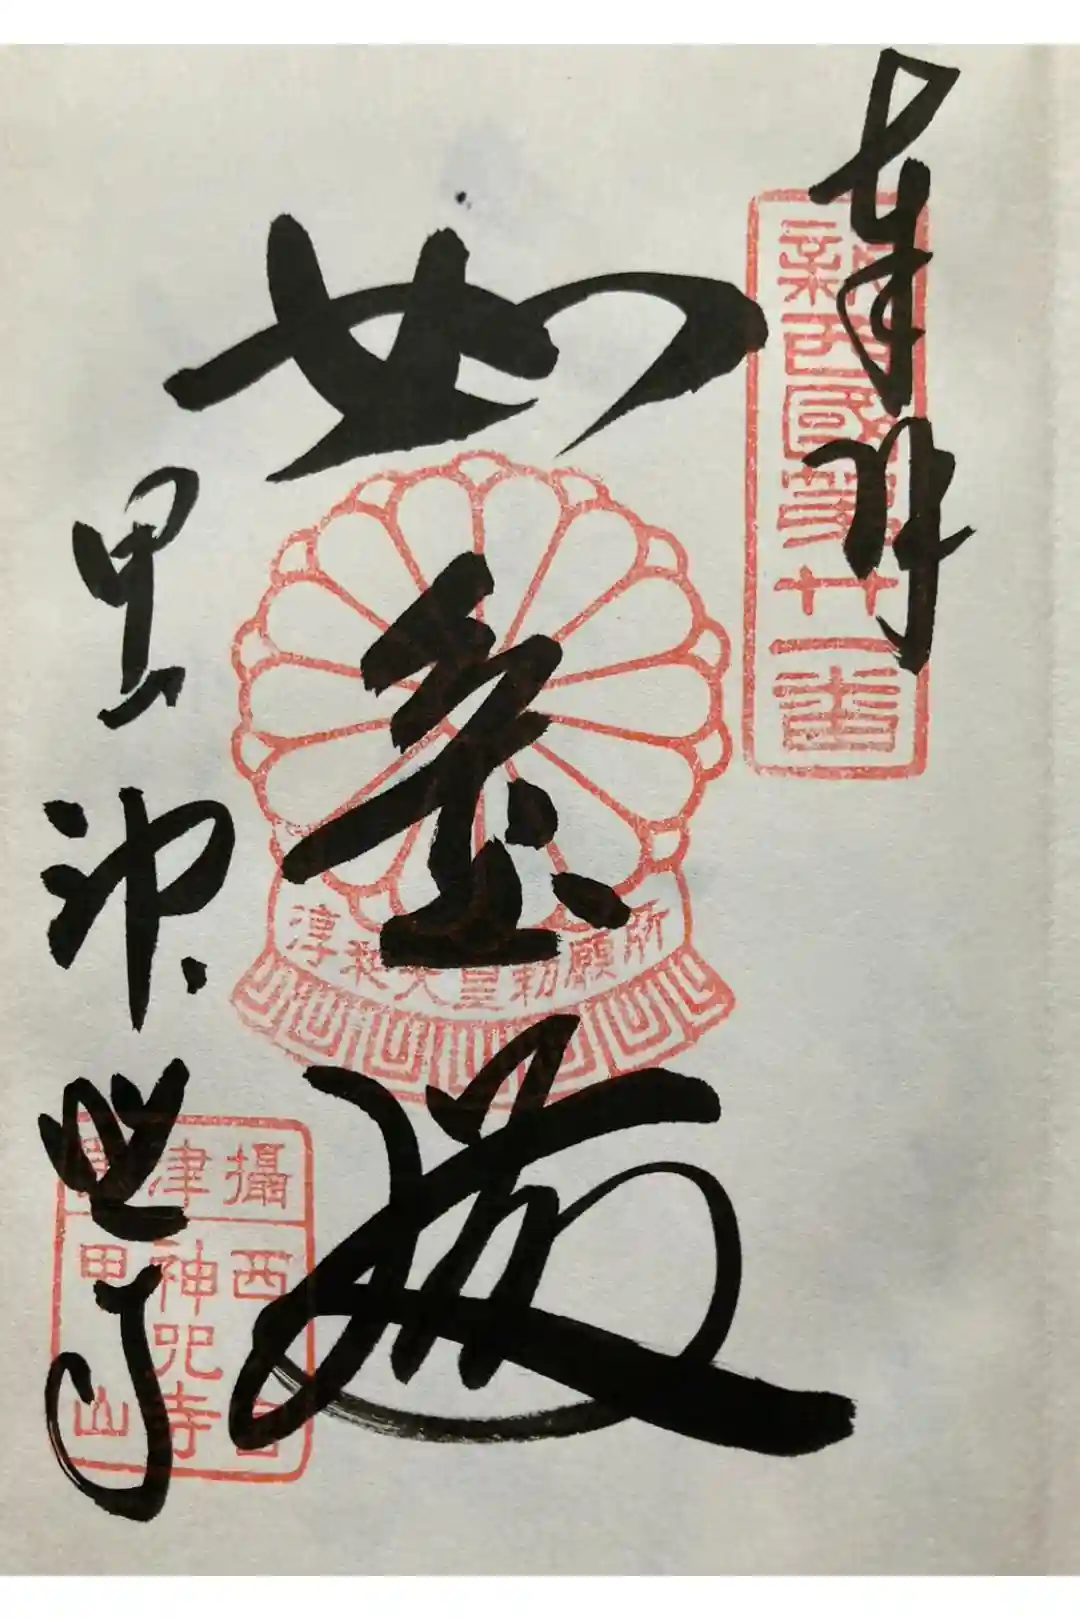 奉拝
新西國第廿一番
如意
淳和天皇勅願所
甲山
神呪寺
攝津國
西宮
神呪寺
甲山